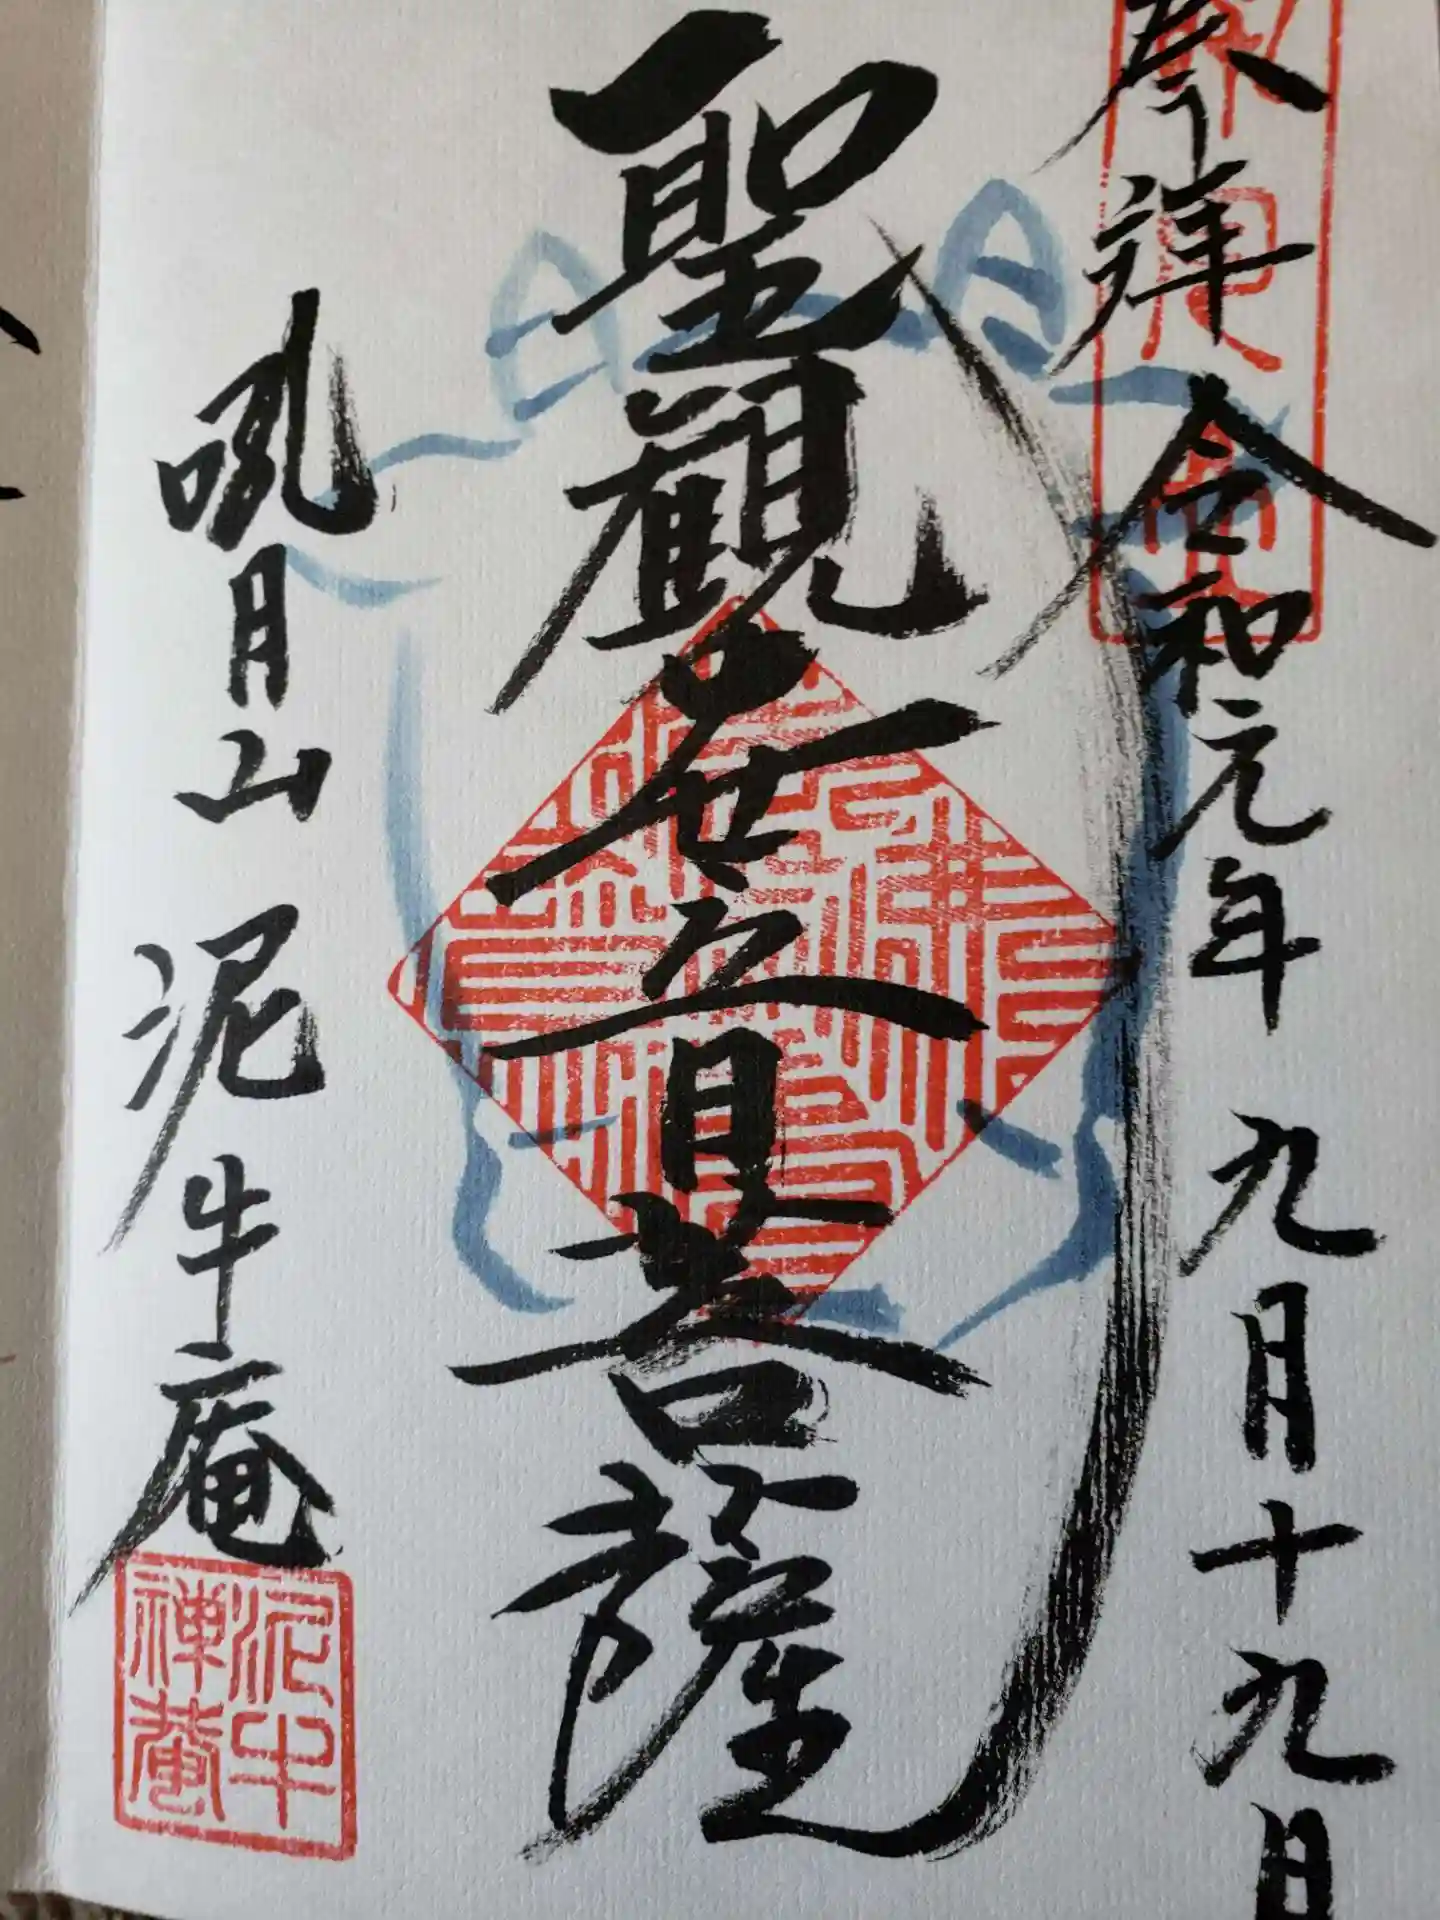 奉拝 令和元年 九月十九日
聖觀世音菩薩
吼月山 泥牛庵
泥牛
禅菴